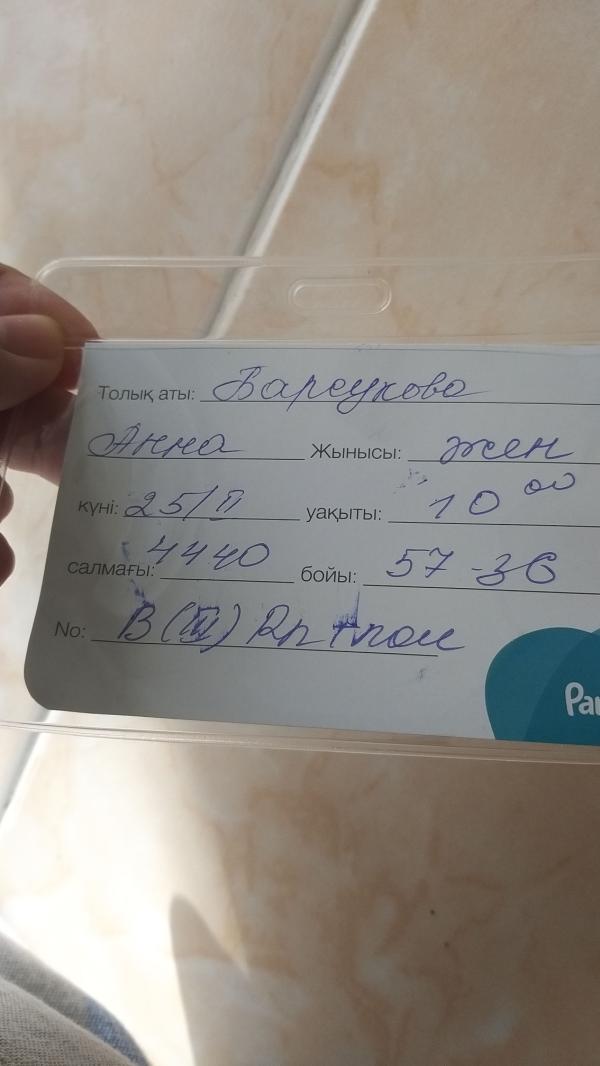 Толық аты: Барсукова
Анна Жынысы: жен
күні: 25/II уақыты: 10 00
салмағы: 4440 бойы: 57-36
No: В (III) Rh + пол
Pa